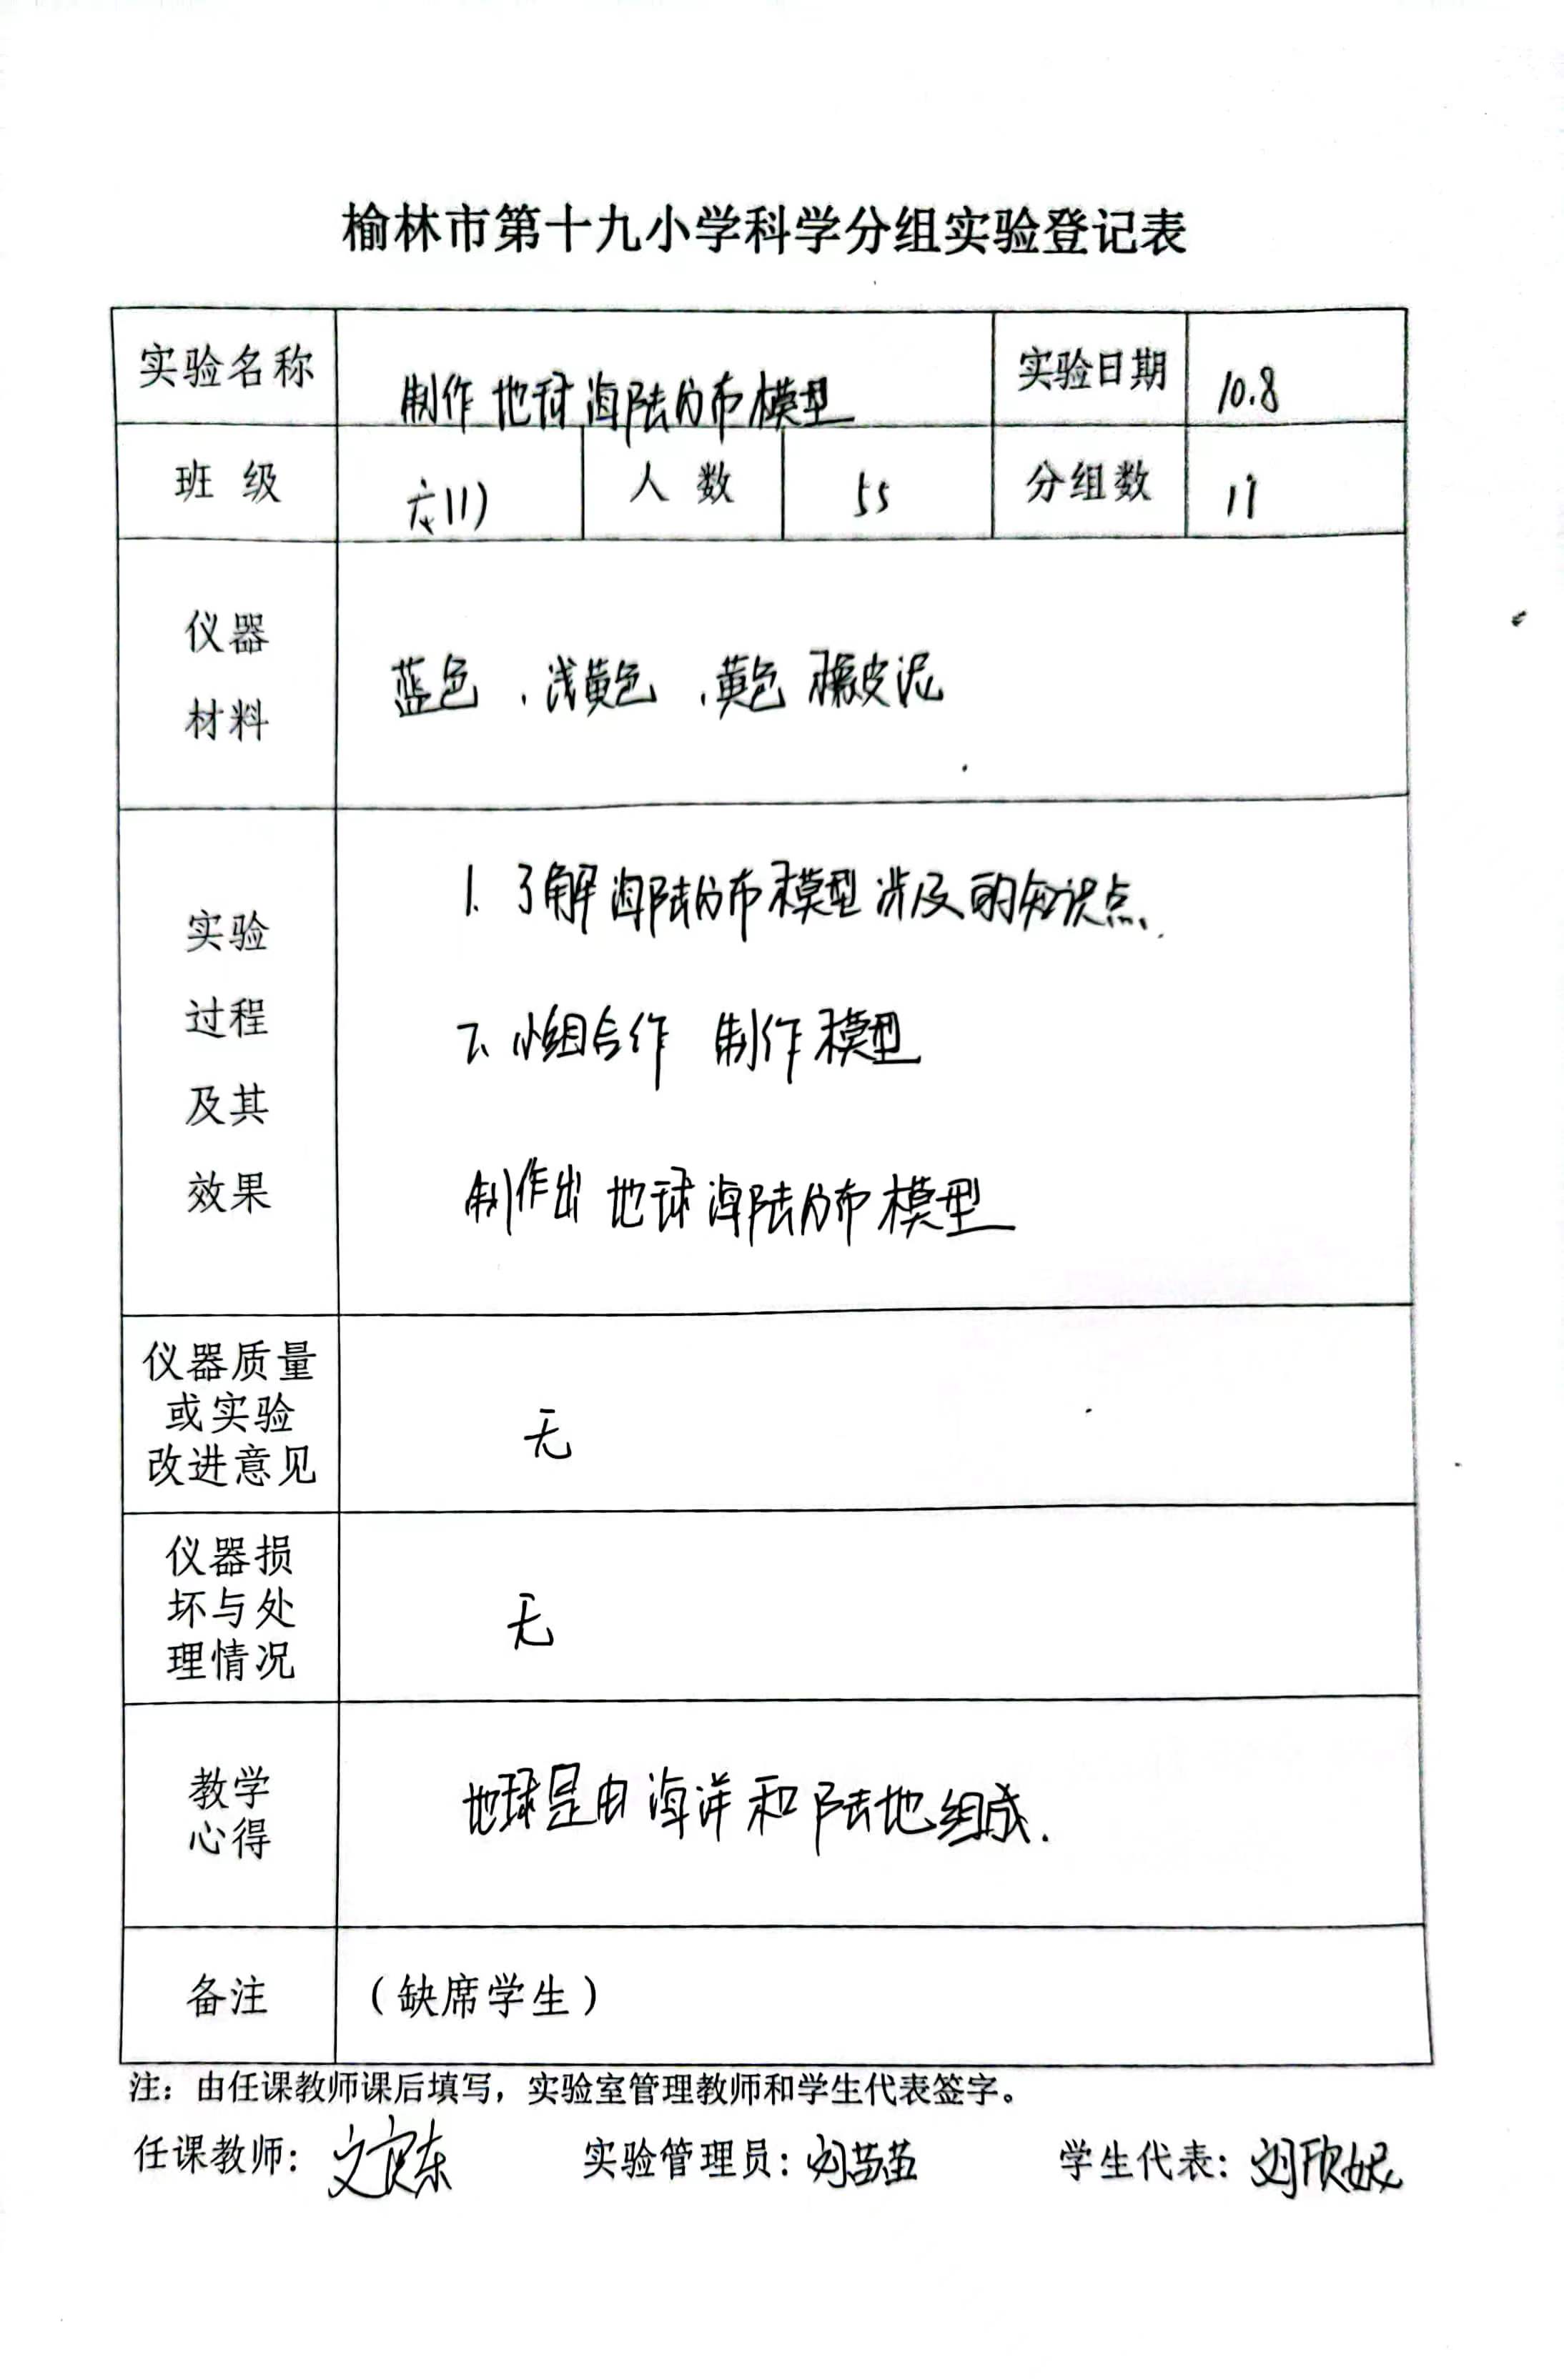 榆林市第十九小学科学分组实验登记表
实验名称 制作地球海陆分布模型 实验日期 10.8
班 级 六(1) 人 数 55 分组数 11
仪器
材料
蓝色、浅黄色、黄色橡皮泥
实验
过程
及其
效果
1. 了解海陆分布模型涉及的知识点.
2. 小组合作 制作模型
制作出地球海陆分布模型
仪器质量
或实验
改进意见
无
仪器损
坏与处
理情况
无
教学
心得
地球是由海洋和陆地组成.
备注 (缺席学生)
注：由任课教师课后填写，实验室管理教师和学生代表签字。
任课教师： 实验管理员：刘苗苗 学生代表：刘欣妮